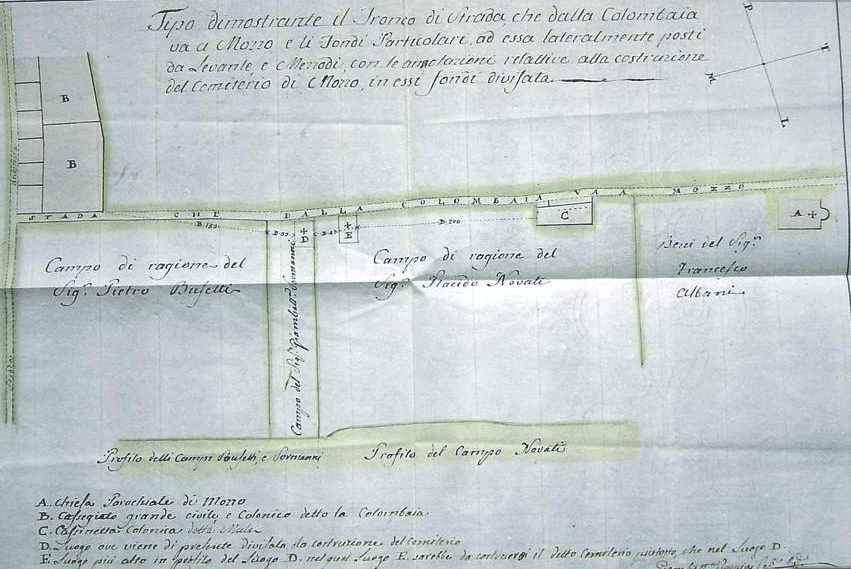 Tipo dimostrante il Tronco di Strada che dalla Colombaia
va a Mozzo e li Fondi Particolari, ad essa lateralmente posti
da Levante, e Mezzodi, con le annotazioni relattive alla costruzione
del Cemiterio di Mozzo, in essi fondi divisata.
P
T
M
L
B
B
STADA CHE DALLA COLOMBAIA VA A MOZZO
B. 200
C
A
D
E
Campo di ragione del
Sig.r Pietro Bufetti
Campo di ragione del
Sig.r Placido Novati
Beni del Sig.r
Francesco
Albani
Campo del Sig.r Sormanni
Profilo delli Campi Bufetti, e Sormanni
Profilo del Campo Novati
A. Chiesa Parochiale di Mozzo
B. Casegiato grande civile e Colonico detto la Colombaia
C. Cassinetta Colonica detta
D. Luogo ove viene di presente divisata la costruzione del Cemiterio
E. Luogo più alto in profilo del Luogo D. nel qual Luogo E. sarebbe da costruersi il detto Cemiterio piuttosto, che nel Luogo D.